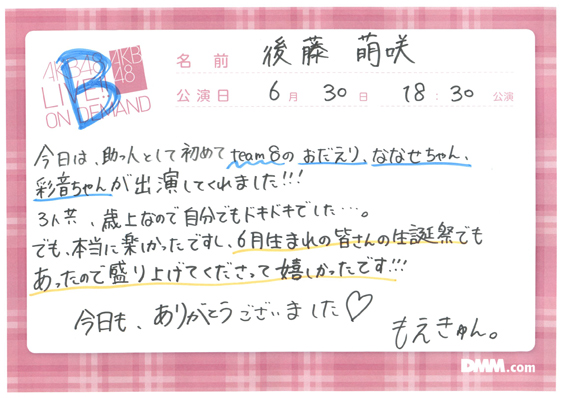 AKB48 AKB48
LIVE!!
ON DEMAND
B
名 前 後藤 萌咲
公演日 6月 30日 18:30 公演
今日は、助っ人として初めてteam8のおだえり、ななせちゃん、
彩音ちゃんが出演してくれました!!!
3人共、歳上なので自分でもドキドキでした…。
でも、本当に楽しかったですし、6月生まれの皆さんの生誕祭でも
あったので盛り上げてくださって嬉しかったです!!!
今日も、ありがとうございました♡
もえきゅん。
DMM.com